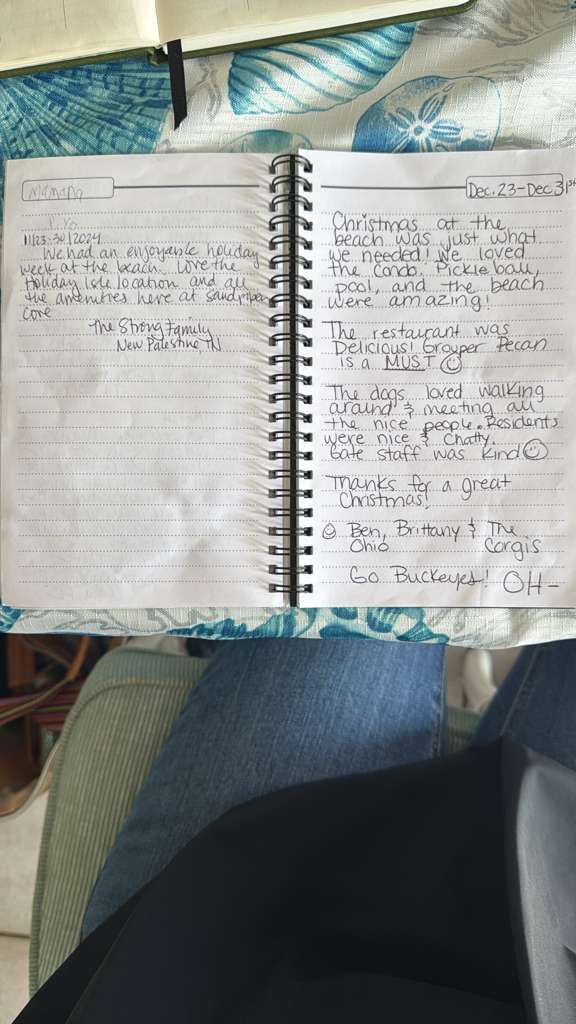 11/23-30/2024
We had an enjoyable holiday
week at the beach. Love the
Holiday Isle location and all
the amenities here at Sandpiper
Cove
The Strong Family
New Palestine, IN
Dec. 23-Dec 31st
Christmas at the
beach was just what
we needed! We loved
the condo. Pickle ball,
pool, and the beach
were amazing!
The restaurant was
Delicious! Grouper Pecan
is a MUST ☺
The dogs loved walking
around & meeting all
the nice people. Residents
were nice & chatty.
Gate staff was kind ☺
Thanks for a great
Christmas!
☺ Ben, Brittany & The
Ohio Corgis
Go Buckeyes! OH-